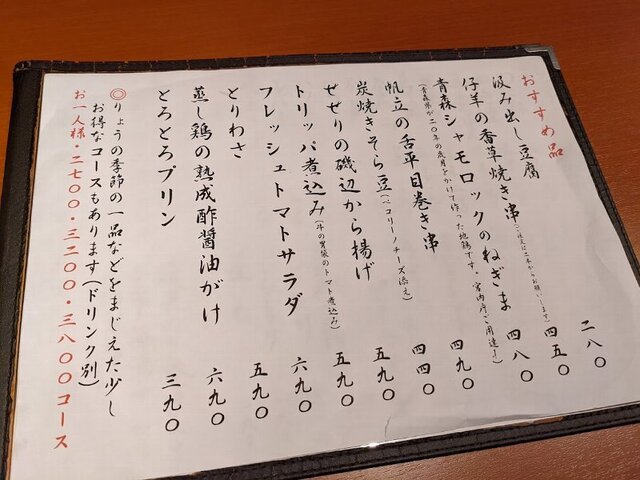 おすすめ品
汲み出し豆腐 二八〇
仔羊の香草焼き串(ご注文は二本からお願いします) 四五〇
青森シャモロックのねぎま 四八〇
(青森県が二〇年の歳月をかけて作った地鶏です。宮内庁ご用達!)
帆立の舌平目巻き串 四九〇
炭焼きそら豆(ペコリーノチーズ添え) 四四〇
せせりの磯辺から揚げ 五九〇
トリッパ煮込み(牛の胃袋のトマト煮込み) 五九〇
フレッシュトマトサラダ 六九〇
とりわさ 五九〇
蒸し鶏の熟成酢醤油がけ 六九〇
とろとろプリン 三九〇
◎りょうの季節の一品などをまじえた少し
お得なコースもあります(ドリンク別)
お一人様・二七〇〇・三二〇〇・三八〇〇コース